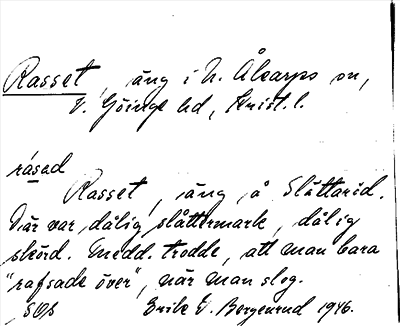 Rasset, äng i N. Åkarps sn,
V. Göinge hd, Krist. l.
rásad
Rasset, äng å Slättaröd.
Där var dålig slåttermark, dålig
skörd. Medd. trodde, att man bara
"rafsade över", när man slog.
SOS Brita E. Bergenrud 1946.